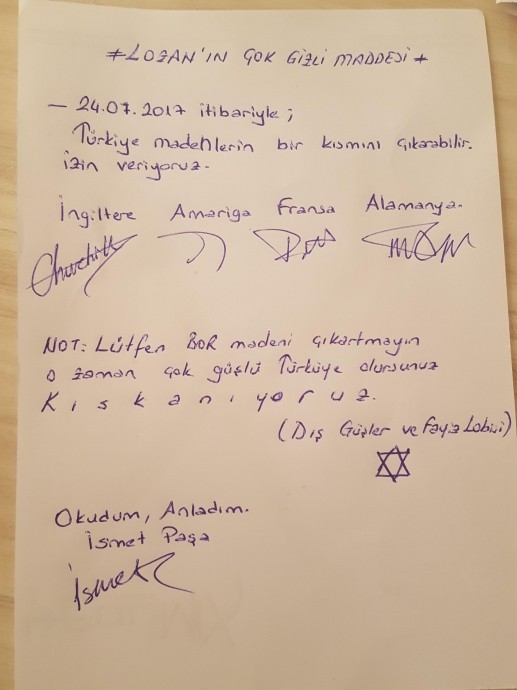 *LOZAN'IN ÇOK GİZLİ MADDESİ*
- 24.07.2017 itibariyle;
Türkiye madenlerin bir kısmını çıkarabilir.
izin veriyoruz.
İngiltere Amariga Fransa Alamanya.
Churchill
NOT: Lütfen BOR madeni çıkartmayın
o zaman çok güşlü Türküye olursunuz
Kıskanıyoruz.
(Dış Güşler ve Fayiz Lobisi)
Okudum, Anladım.
İsmet Paşa
İsmet